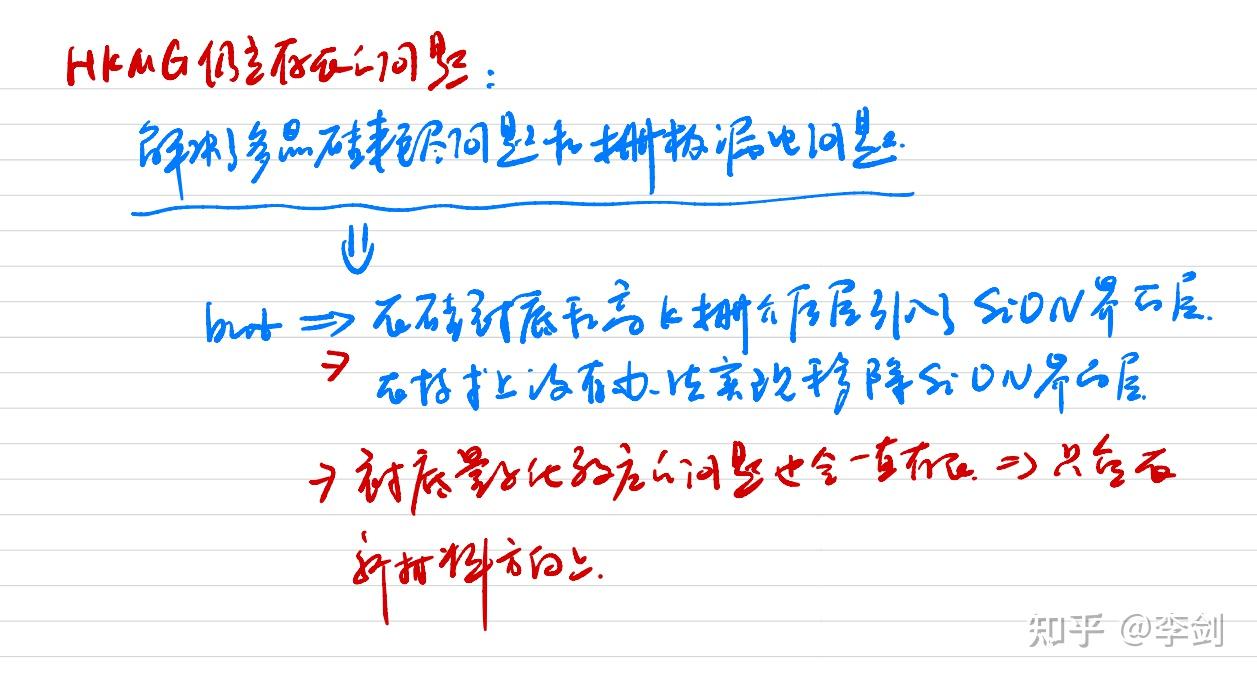 HKMG仍立存在的问题:
解决了多晶硅耗尽问题和栅极漏电问题.
but ⇒ 在硅衬底和高k栅介质层引入了SiON界面层.
→ 在技术上没有办法实现移除SiON界面层.
→ 衬底量子化效应的问题也会一直存在. ⇒ 只会在
新材料方向上.
知乎 @李剑